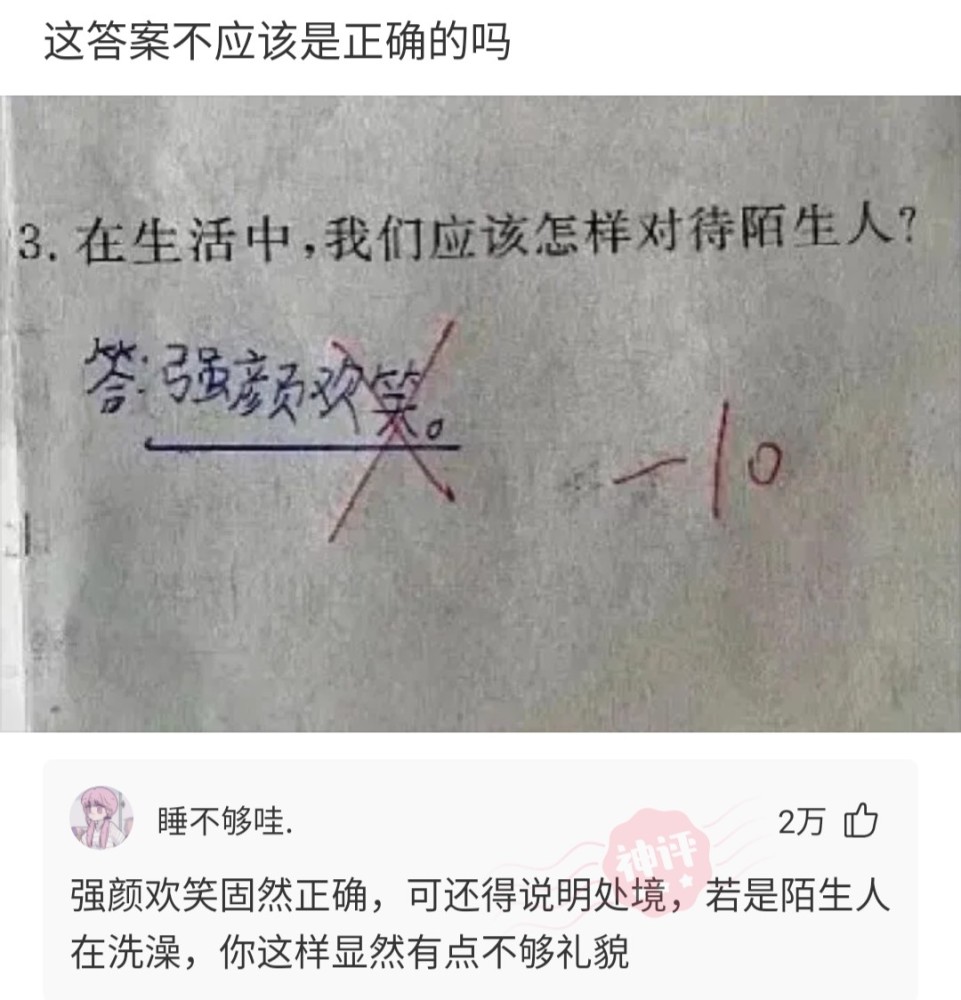 这答案不应该是正确的吗
3. 在生活中,我们应该怎样对待陌生人?
答:强颜欢笑。
-10
睡不够哇.
2万
神评
强颜欢笑固然正确，可还得说明处境，若是陌生人
在洗澡，你这样显然有点不够礼貌